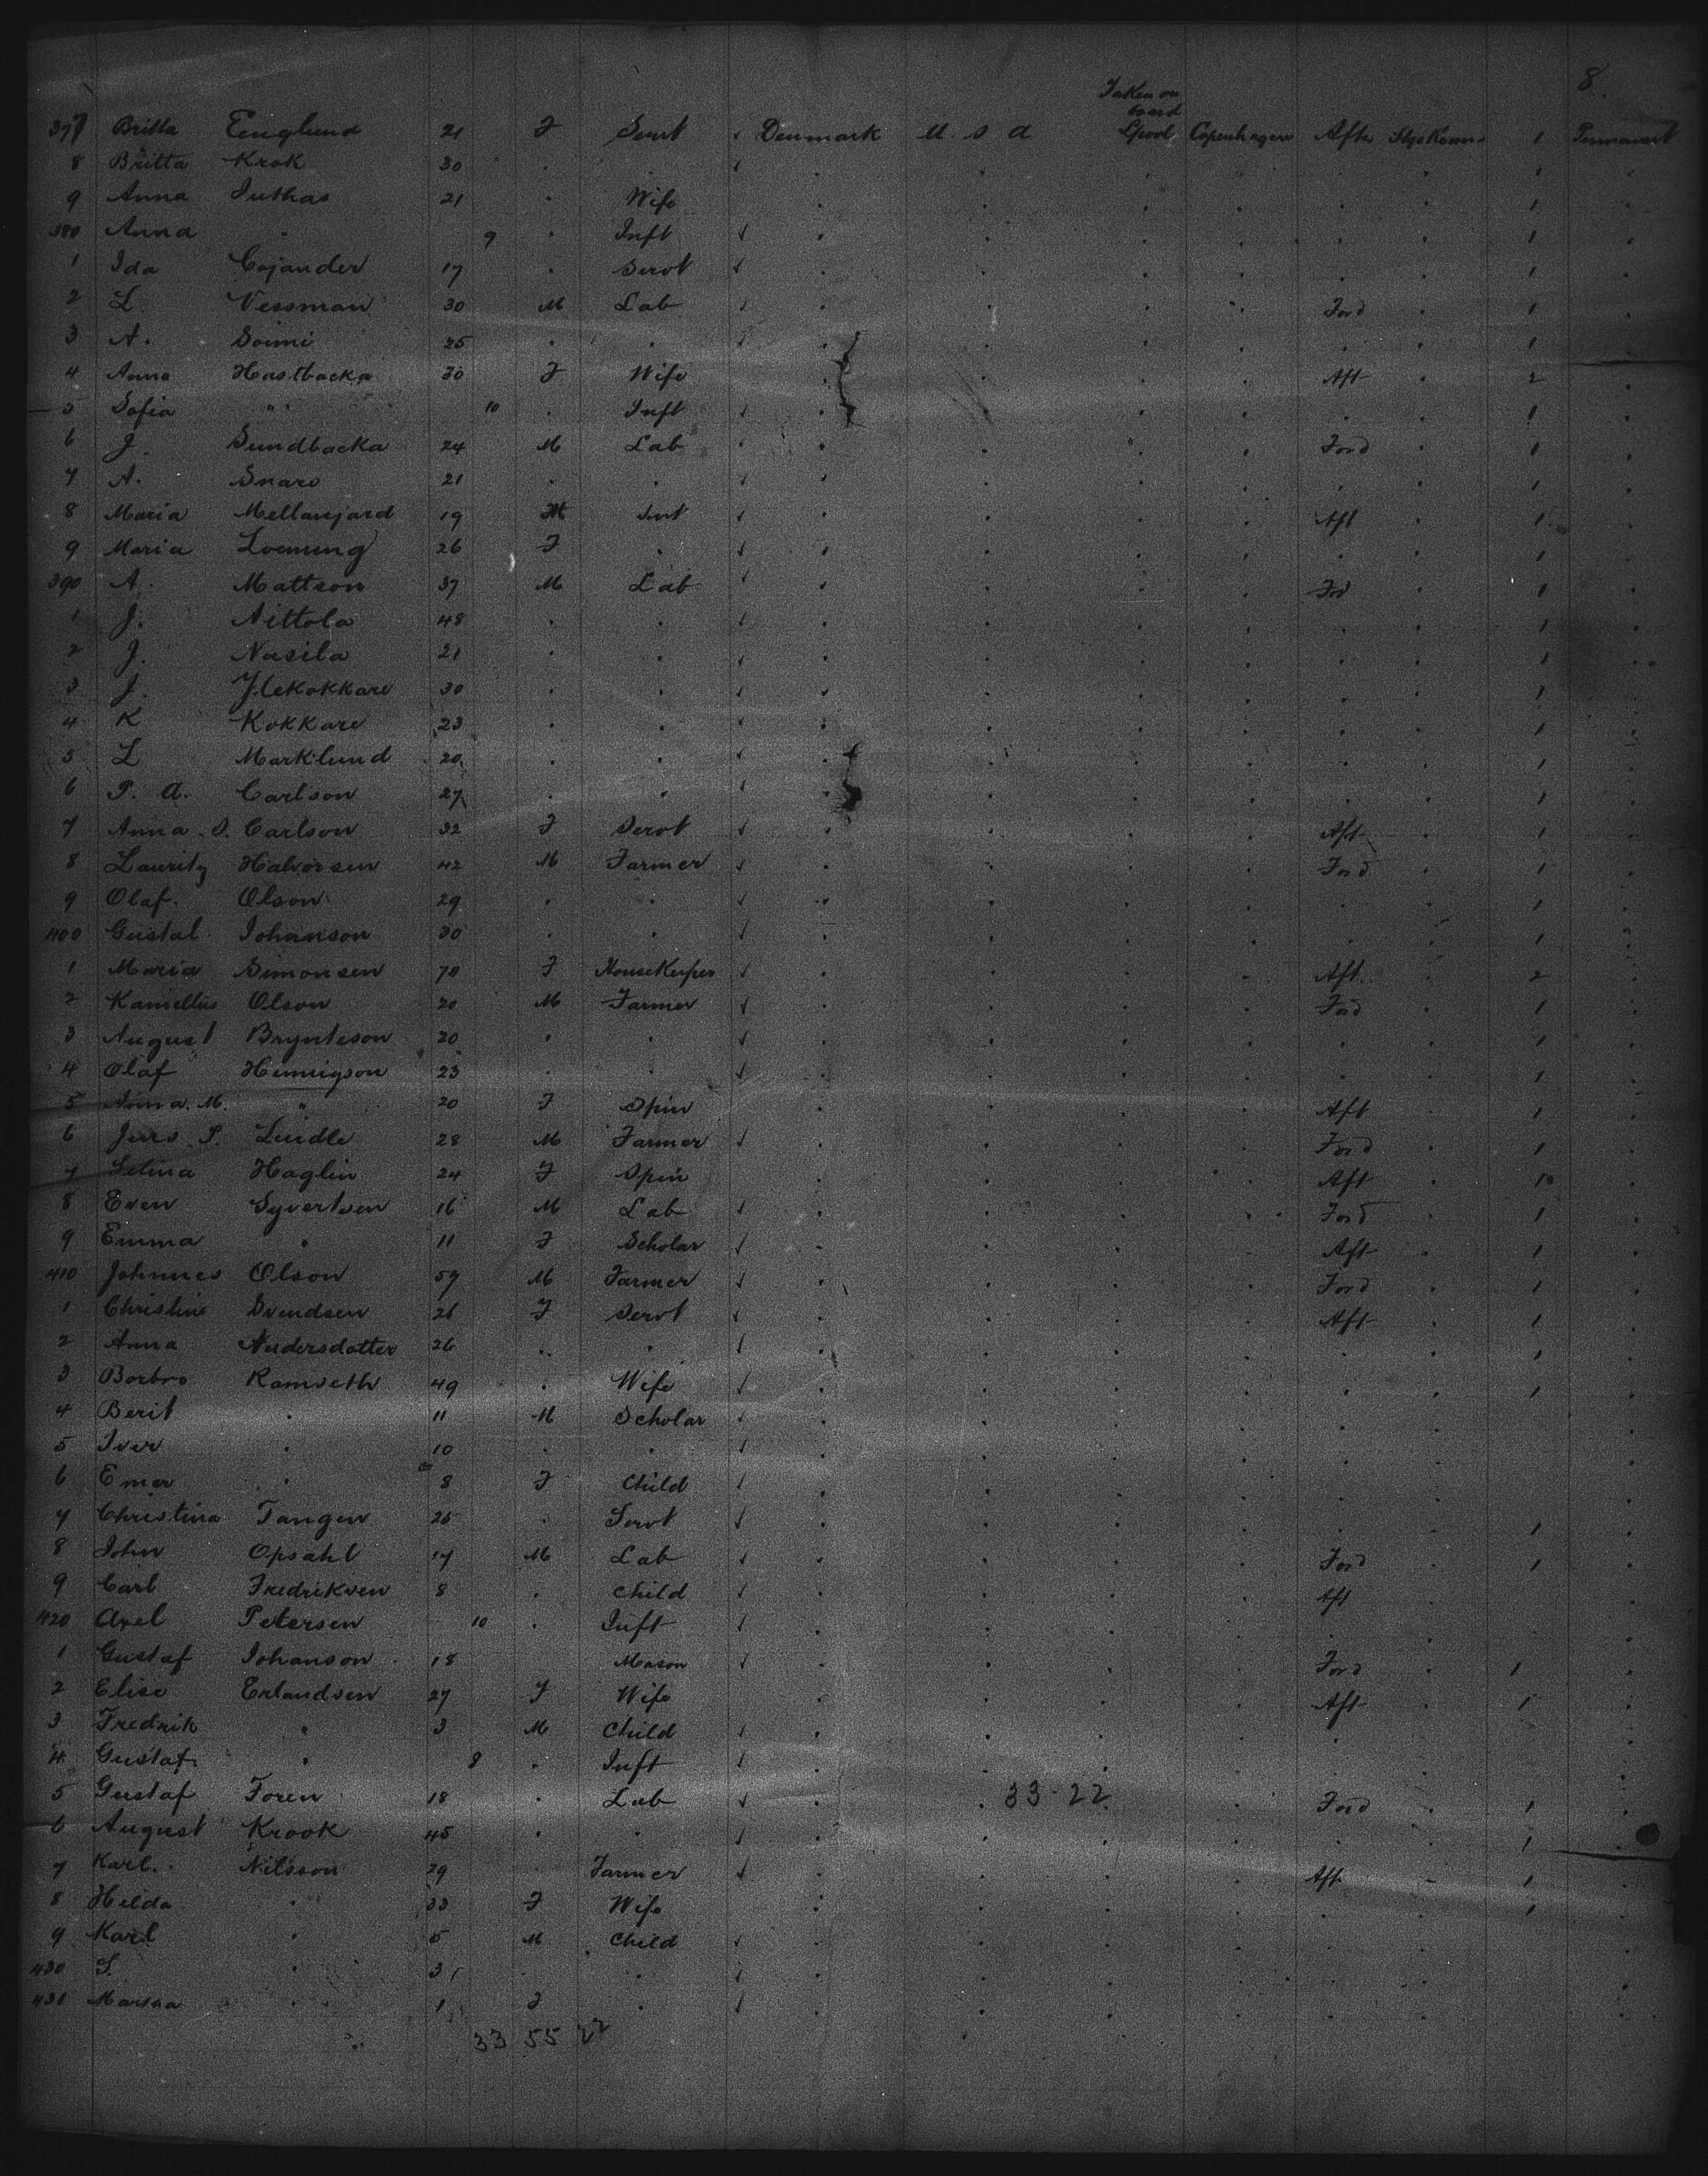 8.
Taken on
board
377 Britta Englund 21 F Servt ✓ Denmark U. S. A Lpool Copenhagen Afte Stge Rooms 1 Permanent
8 Britta Krok 30 . . ✓ . . . . . . 1 .
9 Anna Juthas 21 . Wife . . . . . . 1 .
380 Anna " 9 . Inft ✓ . . . . . . 1 .
1 Ida Cajander 17 . Servt ✓ . . . . . . 1 .
2 L. Vessman 30 M Lab ✓ . . . . Ford . 1 .
3 A. Soimi 25 . . ✓ . . . . . . 1 .
4 Anna Hastbacka 30 F Wife . . . . Aft . 2 .
5 Sofia " 10 . Inft ✓ . . . . . . 1 .
6 J. Sundbacka 24 M Lab ✓ . . . . Ford . 1 .
7 A. Snare 21 . . ✓ . . . . . . 1 .
8 Maria Mellanjard 19 Servt ✓ . . . . Aft . 1 .
9 Maria 26 F . ✓ . . . . . . 1 .
390 A. Mattson 37 M Lab ✓ . . . . Ford . 1 .
1 J. Nittola 48 . . ✓ . . . . . . 1 .
2 J. Nasila 21 . . ✓ . . . . . . 1 .
3 J. 30 . . ✓ . . . . . . 1 .
4 K Kokkare 23 . . ✓ . . . . . . 1 .
5 L Marklund 20 . . ✓ . . . . . . 1 .
6 P. A. Carlson 27 . . ✓ . . . . . . 1 .
7 Anna S. Carlson 32 F Servt ✓ . . . . Aft . 1 .
8 Lauritz Halvorsen 42 M Farmer ✓ . . . . Ford . 1 .
9 Olaf Olson 29 . . ✓ . . . . . . 1 .
400 Gustal Johanson 30 . . ✓ . . . . . . 1 .
1 Maria Simonsen 70 F HouseKeeper ✓ . . . . Aft . 2 .
2 Kamellus Olson 20 M Farmer ✓ . . . . Ford . 1 .
3 August Brynteson 20 . . ✓ . . . . . . 1 .
4 Olaf Hennigson 23 . . ✓ . . . . . . 1 .
5 Anna. M. " 20 F Spin . . . . Aft . 1 .
6 Jens P. Lindle 28 M Farmer ✓ . . . . Ford . 1 .
7 Selma Haglin 24 F Spin . . . . Aft . 1 .
8 Even Syvertsen 16 M Lab ✓ . . . . Ford . 1 .
9 Emma " 11 F Scholar ✓ . . . . Aft . 1 .
410 Johannes Olson 59 M Farmer ✓ . . . . Ford . 1 .
1 Christine Svendsen 26 F Servt ✓ . . . . Aft . 1 .
2 Anna Andersdatter 26 . . ✓ . . . . . . 1 .
3 Borbro Ramseth 49 . Wife ✓ . . . . . . 1 .
4 Berit " 11 M Scholar ✓ . . . . . . .
5 Iver " 10 . . ✓ . . . . . . .
6 Emer " 8 F Child ✓ . . . . . . .
7 Christina Tangen 25 . Servt ✓ . . . . . . 1 .
8 John Opsahl 17 M Lab ✓ . . . . Ford . 1 .
9 Carl Fredriksen 8 . Child ✓ . . . . Aft .
420 Axel Petersen 10 . Inft ✓ . . . . . . .
1 Gustaf Johanson 18 Mason ✓ . . . . Ford . 1 .
2 Elise Erlandsen 27 F Wife . . . . Aft . 1 .
3 Fredrik " 3 M Child ✓ . . . . . . .
4 Gustaf " 8 . Inft ✓ . . . . . . .
5 Gustaf Foren 18 . Lab ✓ . . 33-22 . . Ford . 1 .
6 August Krook 45 . . ✓ . . . . . . 1 .
7 Karl. Nilsson 29 . Farmer ✓ . . . . Aft . 1 .
8 Hilda " 33 F Wife . . . . . . 1 .
9 Karl " 5 M Child ✓ . . . . . . .
430 S. " 3 . . ✓ . . . . . . .
431 " 1 F . ✓ . . . . . . .
33 55 22